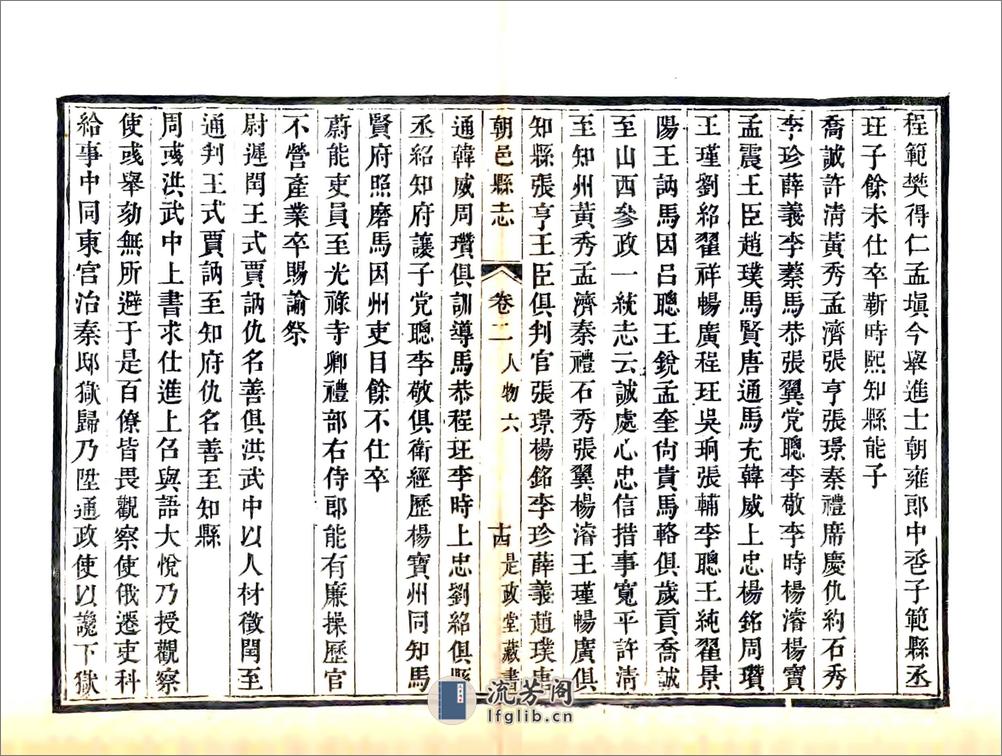 程範樊得仁孟塡今舉進士朝雍郎中爸子範縣丞
玨子餘未仕卒靳時熙知縣能子
喬誠許淸黃秀孟濟張亨張璟秦禮席慶仇約石秀
李珍薛義李蓁馬恭張翼党聰李敬李時楊濬楊寶
孟震王臣趙璞馬賢唐通馬充韓威上忠楊銘周瓚
王瑾劉紹翟祥暢廣程玨吳珣張輔李聰王純翟景
陽王訥馬因呂聰王銳孟奎尙貴馬輅俱歲貢喬誠
至山西參政一統志云誠處心忠信措事寬平許淸
至知州黃秀孟濟秦禮石秀張翼楊濬王瑾暢廣俱
知縣張亨王臣俱判官張璟楊銘李珍薛義趙璞唐
朝邑縣志 卷二 人物六 十四 是政堂藏書
通韓威周瓚俱訓導馬恭程玨李時上忠劉紹俱縣
丞紹知府讓子党聰李敬俱衛經歷楊寶州同知馬
賢府照磨馬因州吏目餘不仕卒
蔚能吏員至光祿寺卿禮部右侍郎能有廉操歷官
不營產業卒賜諭祭
尉遲閏王式賈訥仇名善俱洪武中以人材徵閏至
通判王式賈訥至知府仇名善至知縣
周彧洪武中上書求仕進上召與語大悅乃授觀察
使彧舉劾無所避于是百僚皆畏觀察使俄遷吏科
給事中同東宮治秦邸獄歸乃陞通政使以讒下獄
流芳阁
lfglib.cn